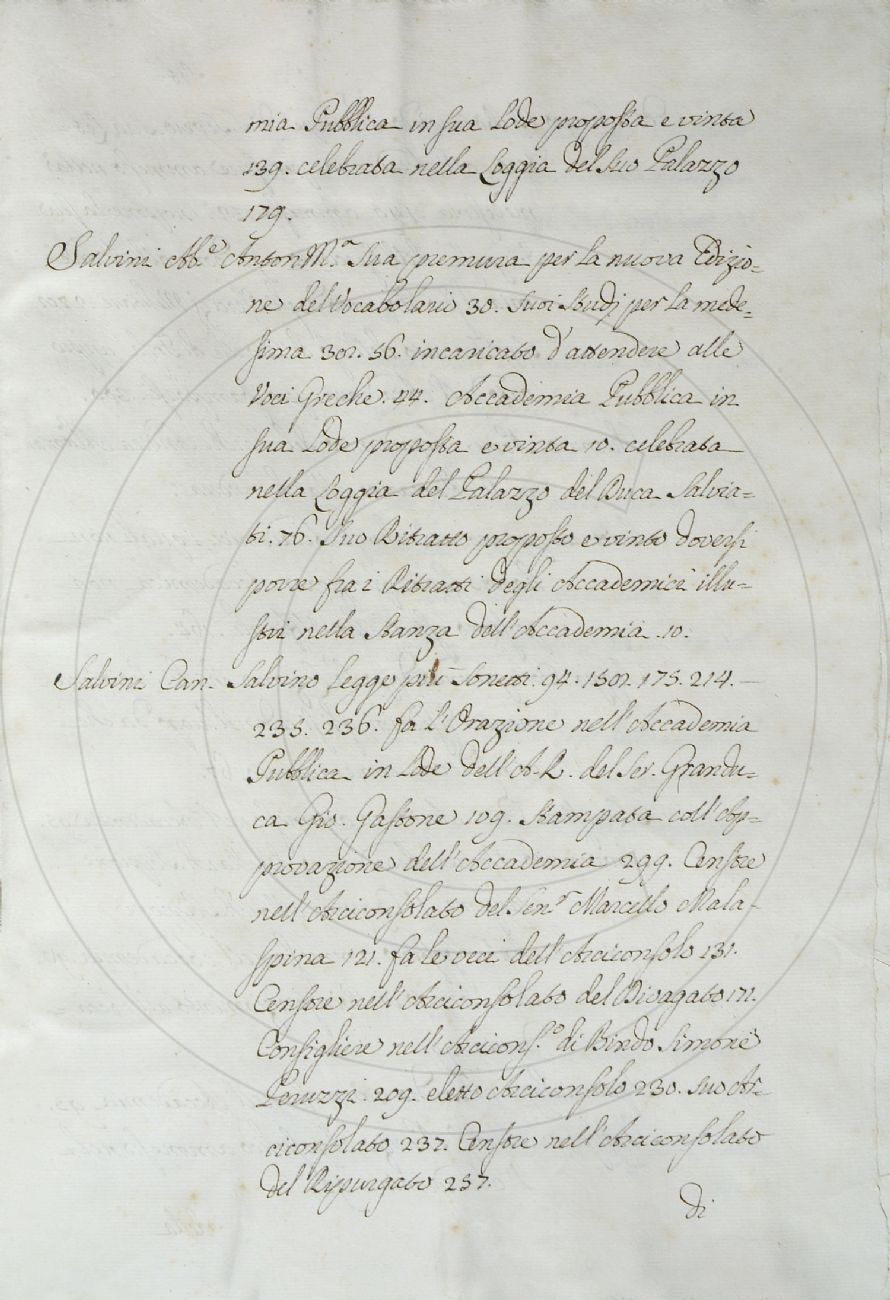 mia Pubblica in sua Lode proposta e vinta
139. celebrata nella Loggia del suo Palazzo
179.
Salvini Ab.e Anton M.a Sua premura per la nuova Edizio=
ne del Vocabolario 30. suoi studj per la mede=
sima 56. incaricato d'attendere alle
Voci Greche. 44. Accademia Pubblica in
sua Lode proposta e vinta 10. celebrata
nella Loggia del Palazzo del Duca Salvia=
ti. 76. suo Ritratto proposto e vinto doversi
porre fra i Ritratti degli Accademici illu=
stri nella Stanza dell'Accademia. 10.
Salvini Can. Salvino legge più Sonetti. 94. 175. 214.
235. 236. fa l'Orazione nell'Accademia
Pubblica in Lode dell'A. R. del Ser. Grandu=
ca Gio. Gastone 109. Stampata coll'Ap=
provazione dell'Accademia 299. Censore
nell'Arciconsolato del Sen.r Marcello Mala=
spina 121. fa le veci dell'Arciconsolo 131.
Censore nell'Arciconsolato del Divagato 171.
Consigliere nell'Arcicons.o di Bindo Simone
Peruzzi. 209. eletto Arciconsolo 230. suo Ar=
ciconsolato 237. Censore nell'Arciconsolato
del Ripurgato 257.
di